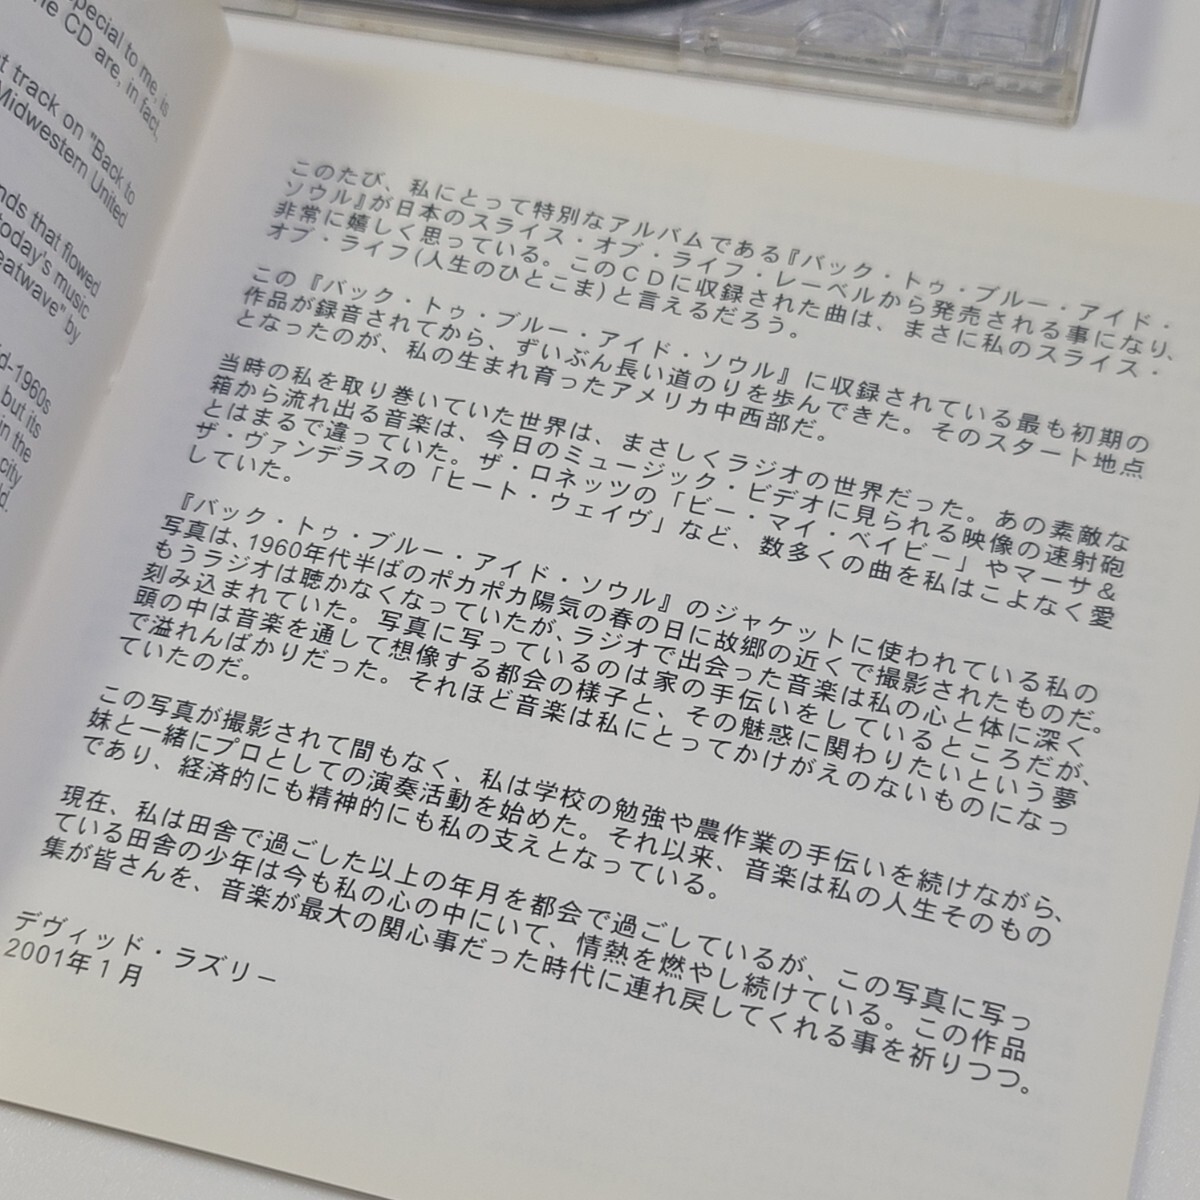 special to me, is
the CD are, in fact,
t track on "Back to
Midwestern United
nds that flowed
today's music
eatwave" by
d-1960s
but its
in the
city
d.
このたび、私にとって特別なアルバムである『バック・トゥ・ブルー・アイド・
ソウル』が日本のスライス・オブ・ライフ・レーベルから発売される事になり、
非常に嬉しく思っている。このCDに収録された曲は、まさに私のスライス・
オブ・ライフ(人生のひとこま)と言えるだろう。
この『バック・トゥ・ブルー・アイド・ソウル』に収録されている最も初期の
作品が録音されてから、ずいぶん長い道のりを歩んできた。そのスタート地点
となったのが、私の生まれ育ったアメリカ中西部だ。
当時の私を取り巻いていた世界は、まさしくラジオの世界だった。あの素敵な
箱から流れ出る音楽は、今日のミュージック・ビデオに見られる映像の速射砲
とはまるで違っていた。ザ・ロネッツの「ビー・マイ・ベイビー」やマーサ&
ザ・ヴァンデラスの「ヒート・ウェイヴ」など、数多くの曲を私はこよなく愛
していた。
『バック・トゥ・ブルー・アイド・ソウル』のジャケットに使われている私の
写真は、1960年代半ばのポカポカ陽気の春の日に故郷の近くで撮影されたものだ。
もうラジオは聴かなくなっていたが、ラジオで出会った音楽は私の心と体に深く
刻み込まれていた。写真に写っているのは家の手伝いをしているところだが、
頭の中は音楽を通して想像する都会の様子と、その魅惑に関わりたいという夢
で溢れんばかりだった。それほど音楽は私にとってかけがえのないものになっ
ていたのだ。
この写真が撮影されて間もなく、私は学校の勉強や農作業の手伝いを続けながら、
妹と一緒にプロとしての演奏活動を始めた。それ以来、音楽は私の人生そのもの
であり、経済的にも精神的にも私の支えとなっている。
現在、私は田舎で過ごした以上の年月を都会で過ごしているが、この写真に写っ
ている田舎の少年は今も私の心の中にいて、情熱を燃やし続けている。この作品
集が皆さんを、音楽が最大の関心事だった時代に連れ戻してくれる事を祈りつつ。
デヴィッド・ラズリー
2001年1月